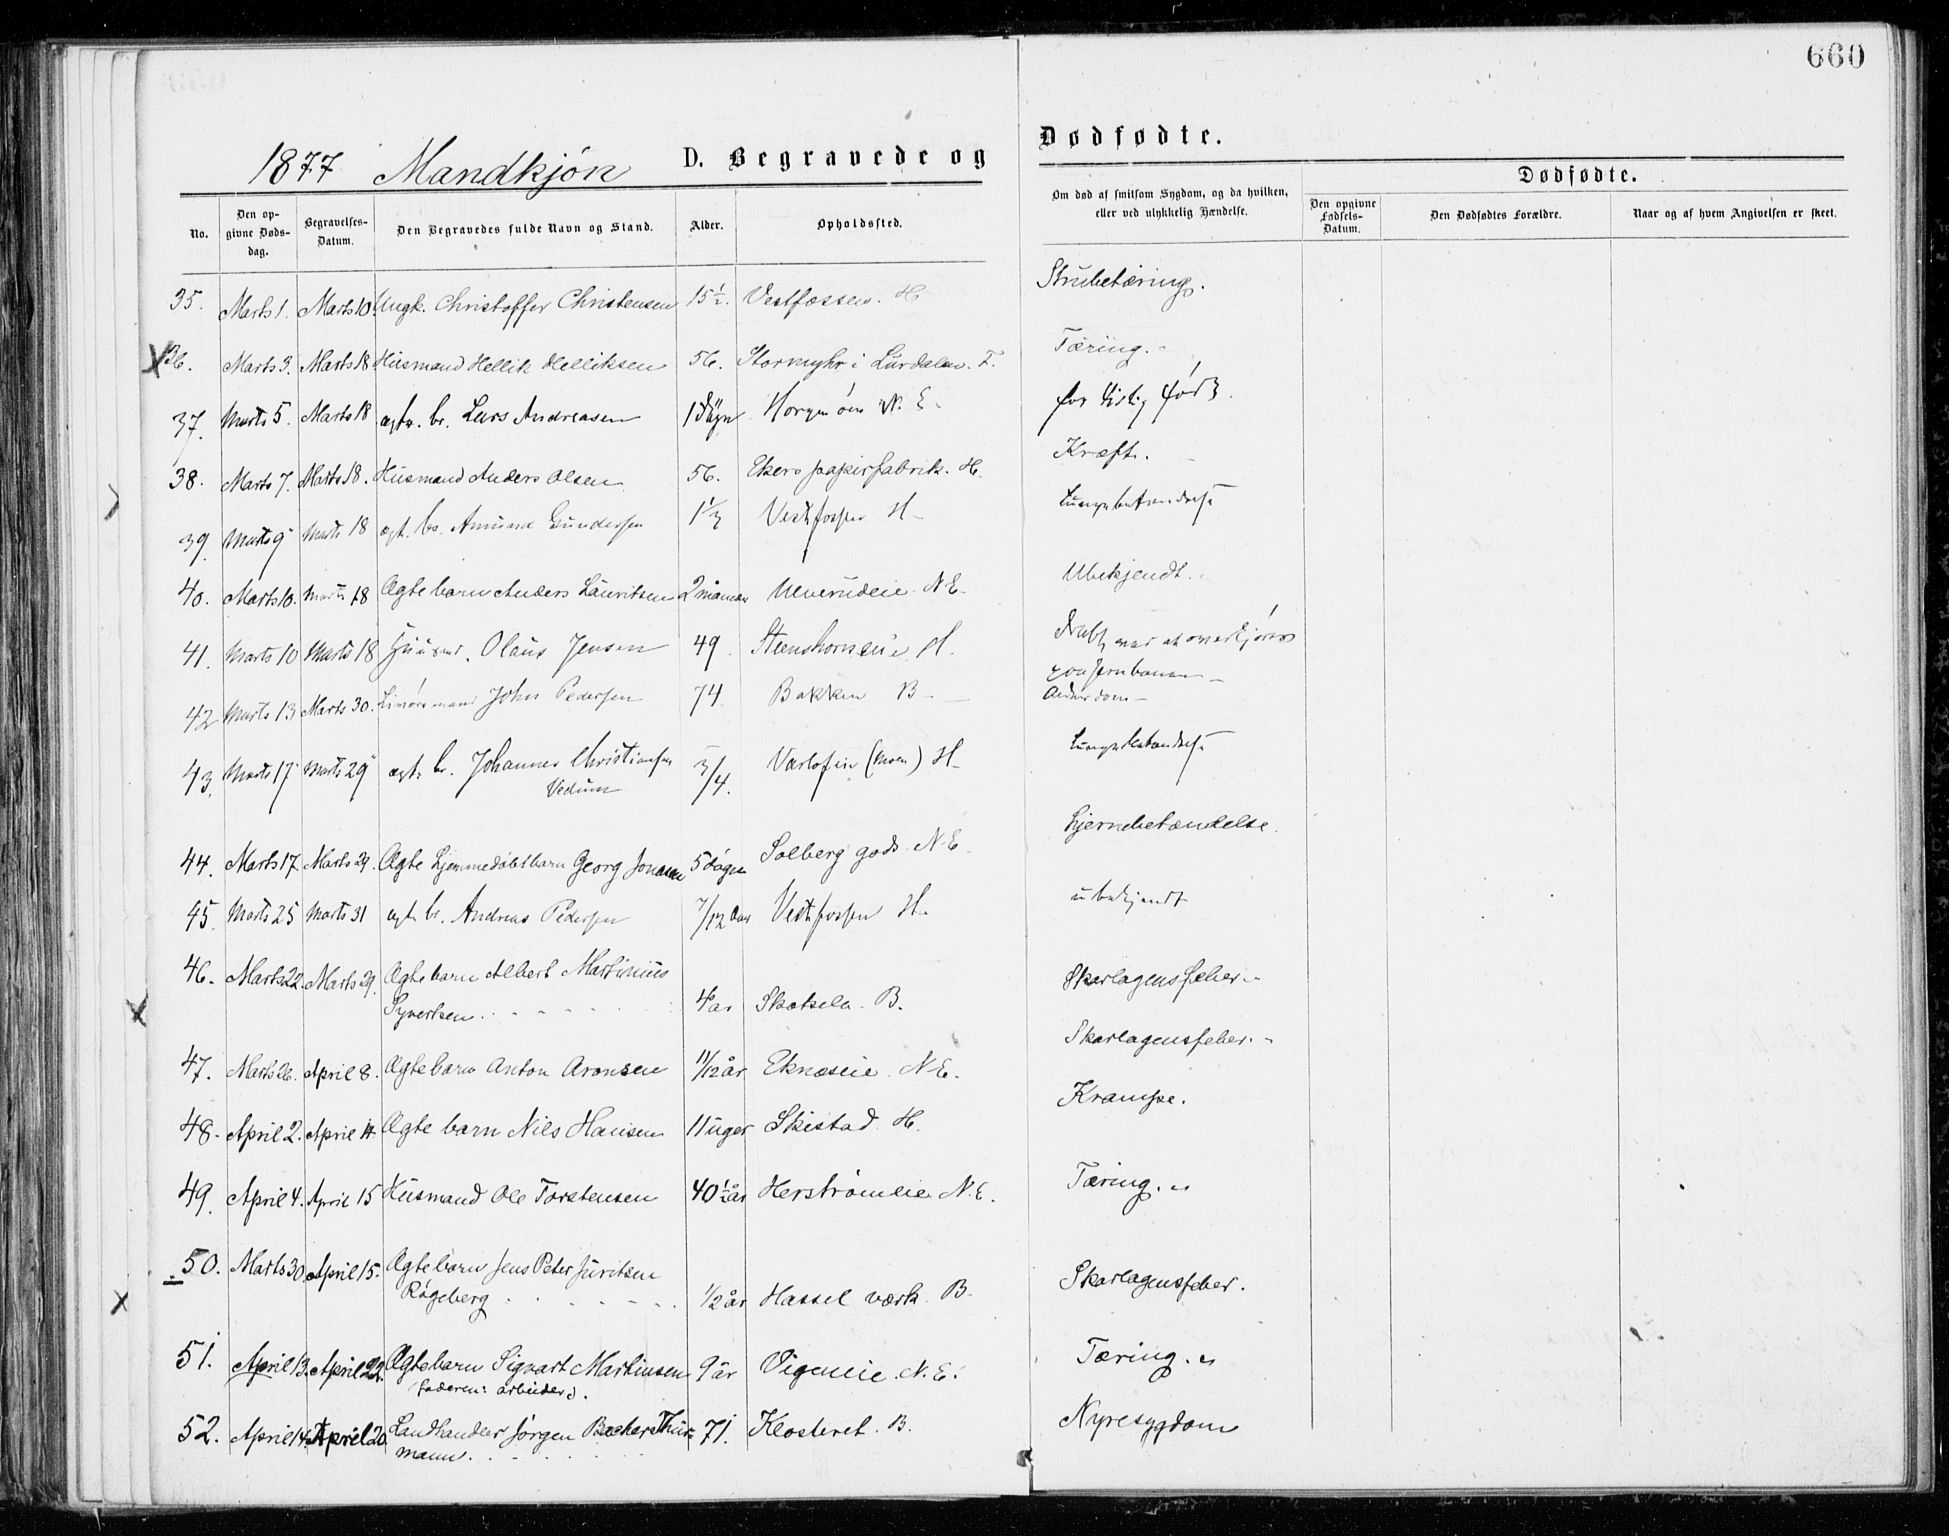 660
1877 Mandkjøn D. Begravede og Dødfødte.
Dødfødte.
No.
Den opgivne Dødsdag.
Begravelses-Datum.
Den Begravedes fulde Navn og Stand.
Alder.
Opholdssted.
Om død af smitsom Sygdom, og da hvilken, eller ved ulykkelig Hændelse.
Den opgivne Fødsels-Datum.
Den Dødfødtes Forældre.
Naar og af hvem Angivelsen er skeet.
35. Marts 1. Marts 10. Ungk. Christoffer Christensen 15½. Vestfossen. H Strubetæring.
36. Marts 3. Marts 18. Husmand Hellik Helliksen 56. Stormyhr i Lurdalen. F. Tæring.
37. Marts 5. Marts 18 ægte. br. Lars Andreasen 1 døgn N. E. for tidlig født.
38. Marts 7. Marts 18. Husmand Anders Olsen 56. Ekers papirfabrik. H. Kræft.
39. Marts 9 Marts 18 ægt. br. Amund Gundersen Vestfossen H Lungebetændelse
40. Marts 10. Marts 18 Ægte barn Anders Lauritsen 2 maaneder Ulverudeie N.E. Ubekjendt.
41. Marts 10 Marts 18 Huusmd. Olaus Jensen 49 Steenshorneie H. Dræbt ved at overkjøres
paa Jernbanen
42 Marts 13 Marts 30. John Pedersen 74 Bakken B Alderdom
43. Marts 17 Marts 29 ægte br. Johannes Christiansen 3/4. (Moen) H Lungebetændelse
Vedum
44. Marts 17. Marts 29. Ægte hjemmedøbt barn Georg Jonasen 5 døgn Solberg gods. N.E. Hjernebetændelse.
45. Marts 25 Marts 31 ægte br. Andreas Pedersen 7/12 Aar Vestfossen H. ubekjendt
46. Marts 22. Marts 29. Ægte barn Albert Martinius Skarlagensfeber.
Syvertsen. 4 ar Skotselv. B.
47. Marts 26. April 8. Ægte barn Anton Aronsen 11/12 år Eknæseie. N.E. Skarlagensfeber.
48. April 2. April 14. Ægte barn Nils Hansen 11 uger Skistad H. Krampe.
49. April 4. April 15 Husmand Ole Torstensen 40½ år Herstrømeie N.E. Tæring.
50. Marts 30 April 15. Ægte barn Jens Peter Juritsen
Røgeberg 1/2 år Hassel værk. B. Skarlagensfeber.
51. April 13. April 22. Ægte barn Sigvart Martinsen 9 år Vigeneie. N.E. Tæring.
(faderen: arbeider).
52. April 14. April 20. Landhandler Jørgen Backer Thur- 71. Klosteret. B. Nyresygdom
mann.